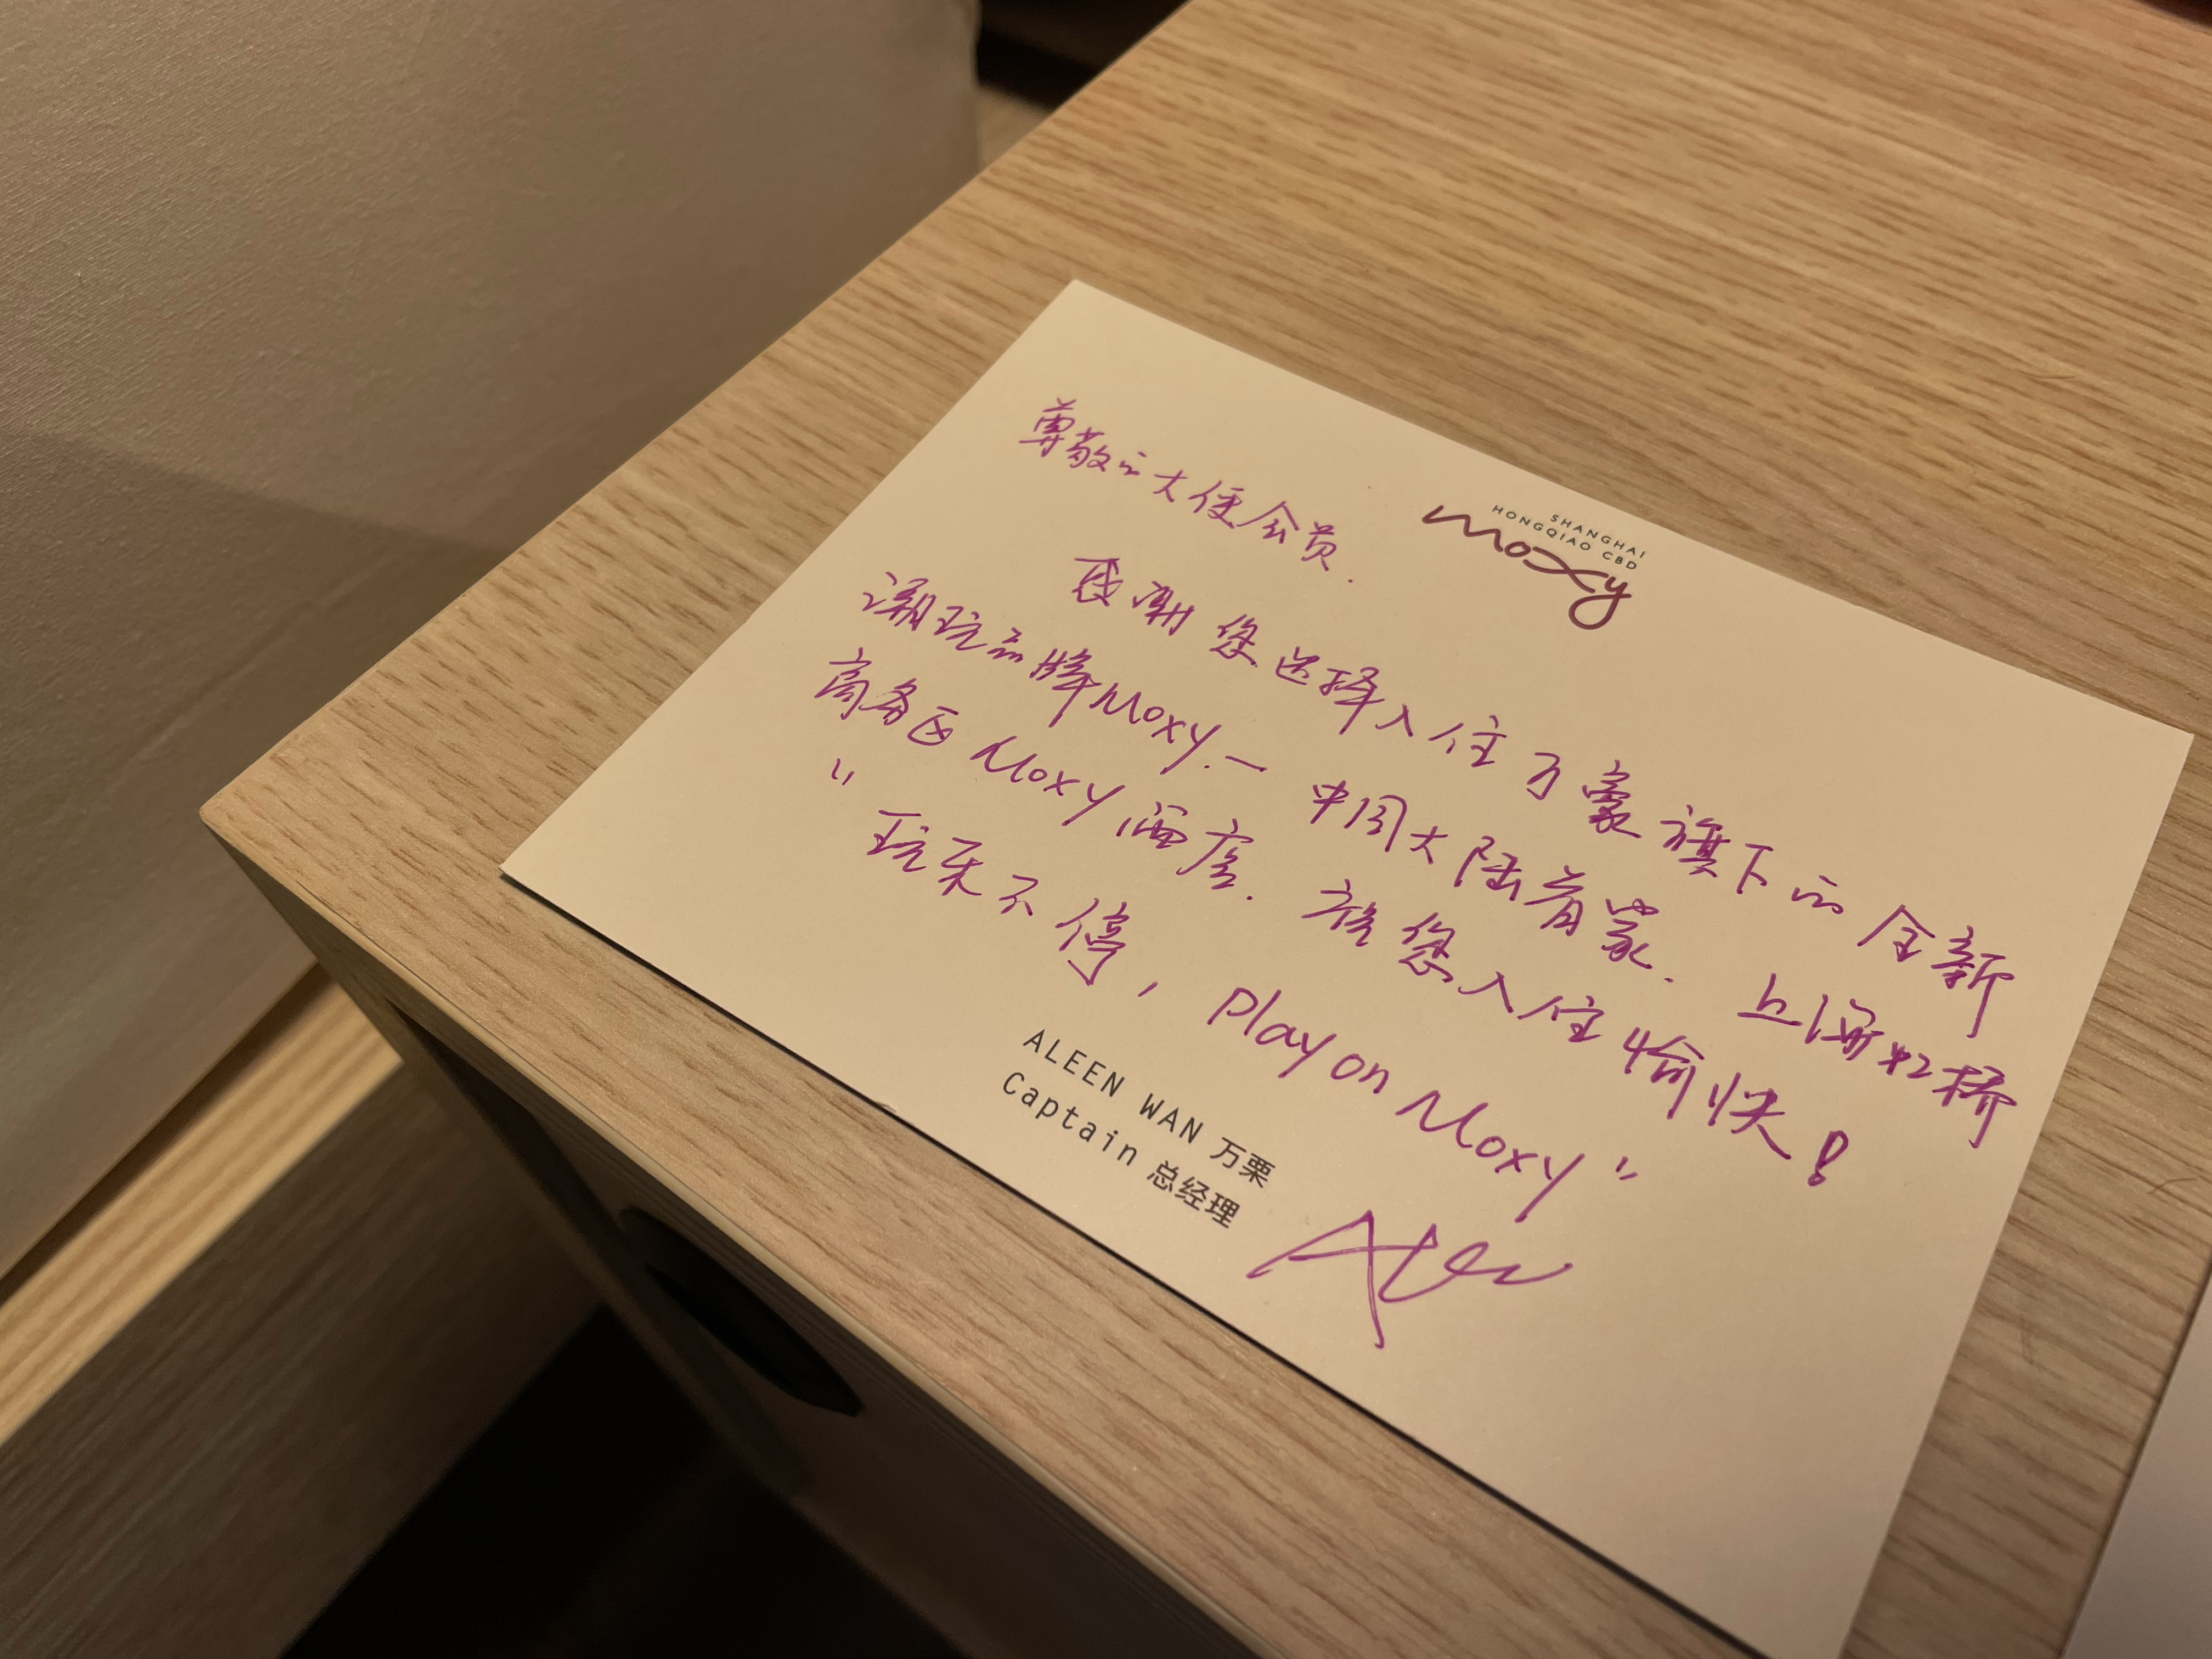 SHANGHAI
HONGQIAO CBD
moxy
尊敬的大使会员.
感谢您选择入住万豪旗下的全新
潮玩品牌Moxy.一 中国大陆首家. 上海虹桥
商务区Moxy酒店. 祝您入住愉快!
"玩乐不停, Play on Moxy"
ALEEN WAN 万栗
Captain 总经理